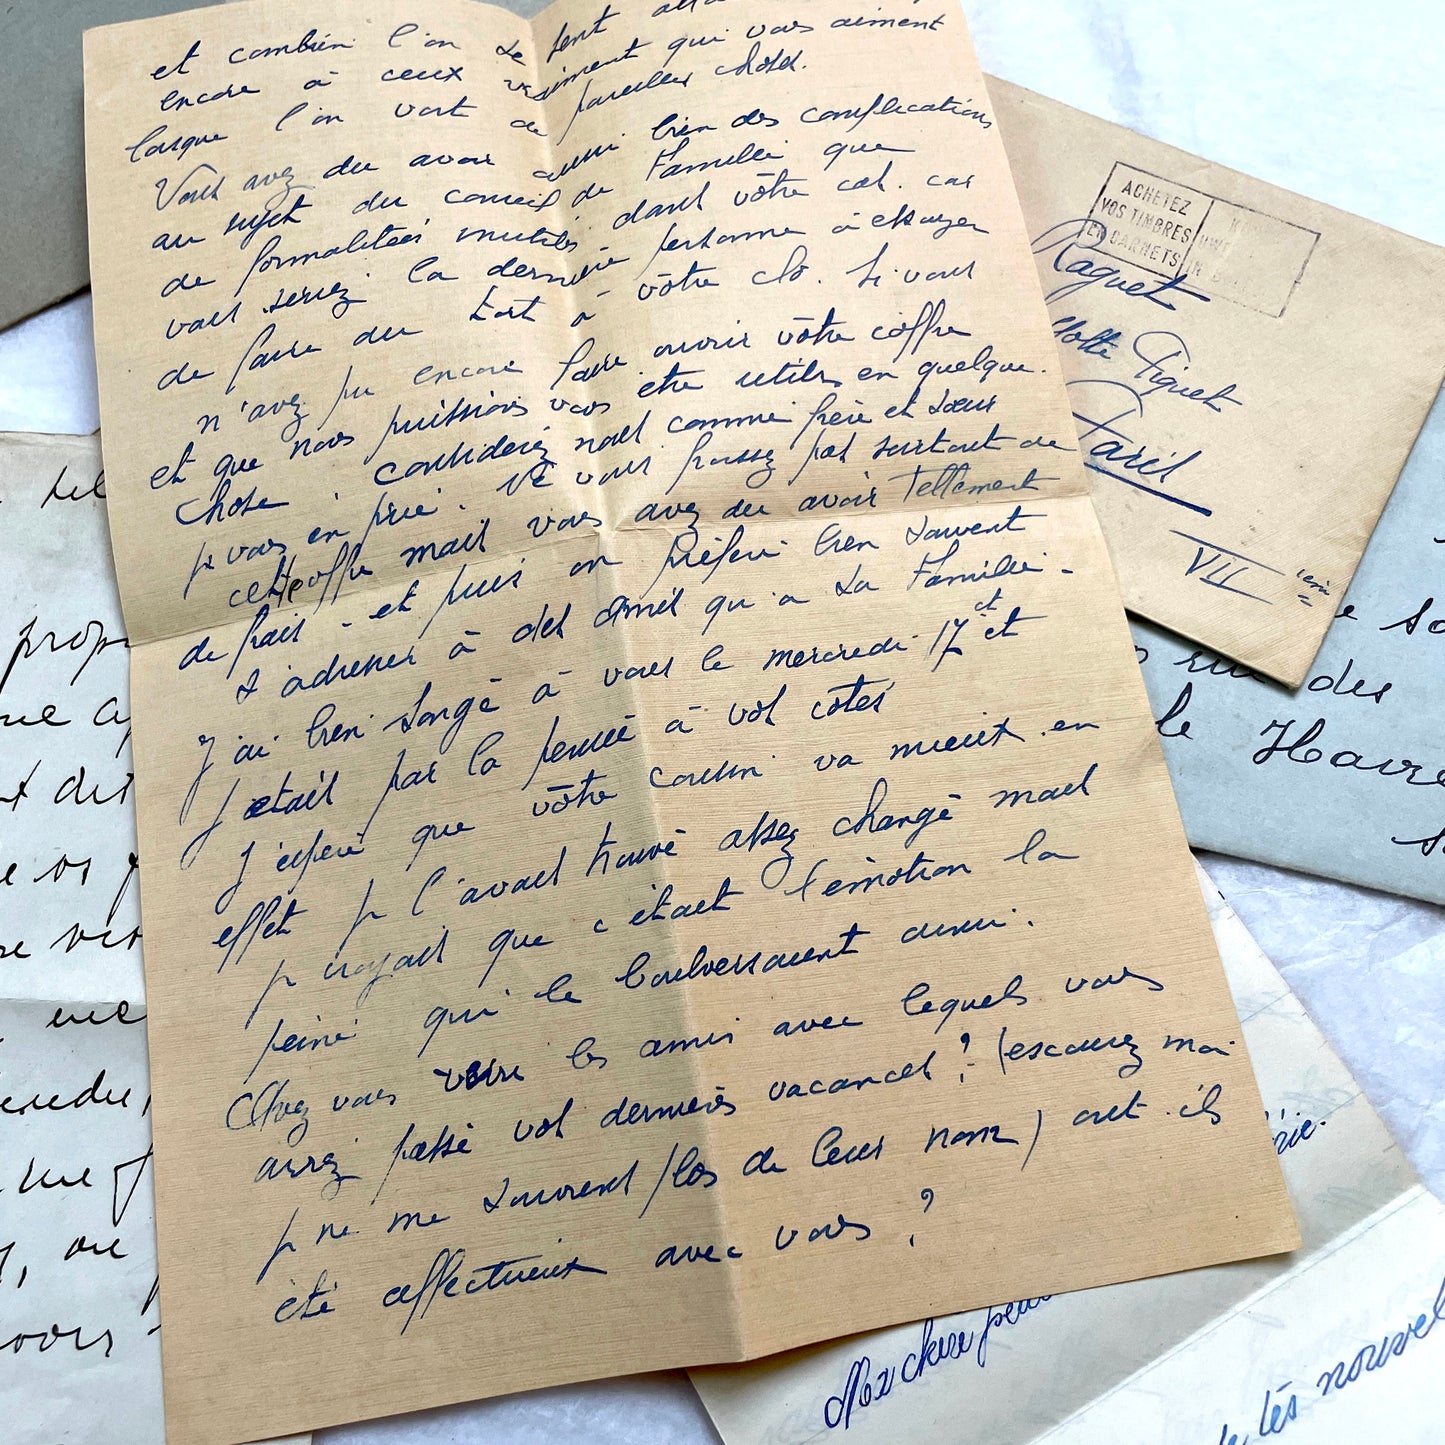 et combien l'on se sent
encore à ceux vraiment qui vous aiment
lorsque l'on voit de pareilles choses.
Vous avez du avoir aussi bien des complications
au sujet du conseil de Famille que
de formalitées inutiles dans vôtre cas. car
vous seriez la dernière personne à essayer
de faire du tort à vôtre clo. Si vous
n'avez pu encore faire ouvrir vôtre coffre
et que nous puissions vous etre utiles en quelque.
chose. considerez nous comme frère et sœur
je vous en prie. Ne vous passez pas surtout de
cette coffre mais vous avez du avoir Tellement
de frais - et puis on préfère bien souvent
s'adresser à des amis qu'a sa Famille -
J'ai bien songé à vous le mercredi 17 et
et
j'etais par la pensée à vos côtés
J'espère que vôtre cousin va mieux. en
effet je l'avais trouvé assez changé mais
je croyais que c'était l'émotion la
peine qui le bouleversaient ainsi.
Avez vous revu les amis avec lequels vous
avrez passé vos dernières vacances? (escusez moi
je ne me souviens plus de leur nom) ont ils
été affectueux avec vous?
ACHETEZ
VOS TIMBRES
EN CARNETS
Raguet
Motte Piquet
Paris
VII
ieme
propr
ue
dit
vous
des
le Havre
Ma chère
tes nouvel